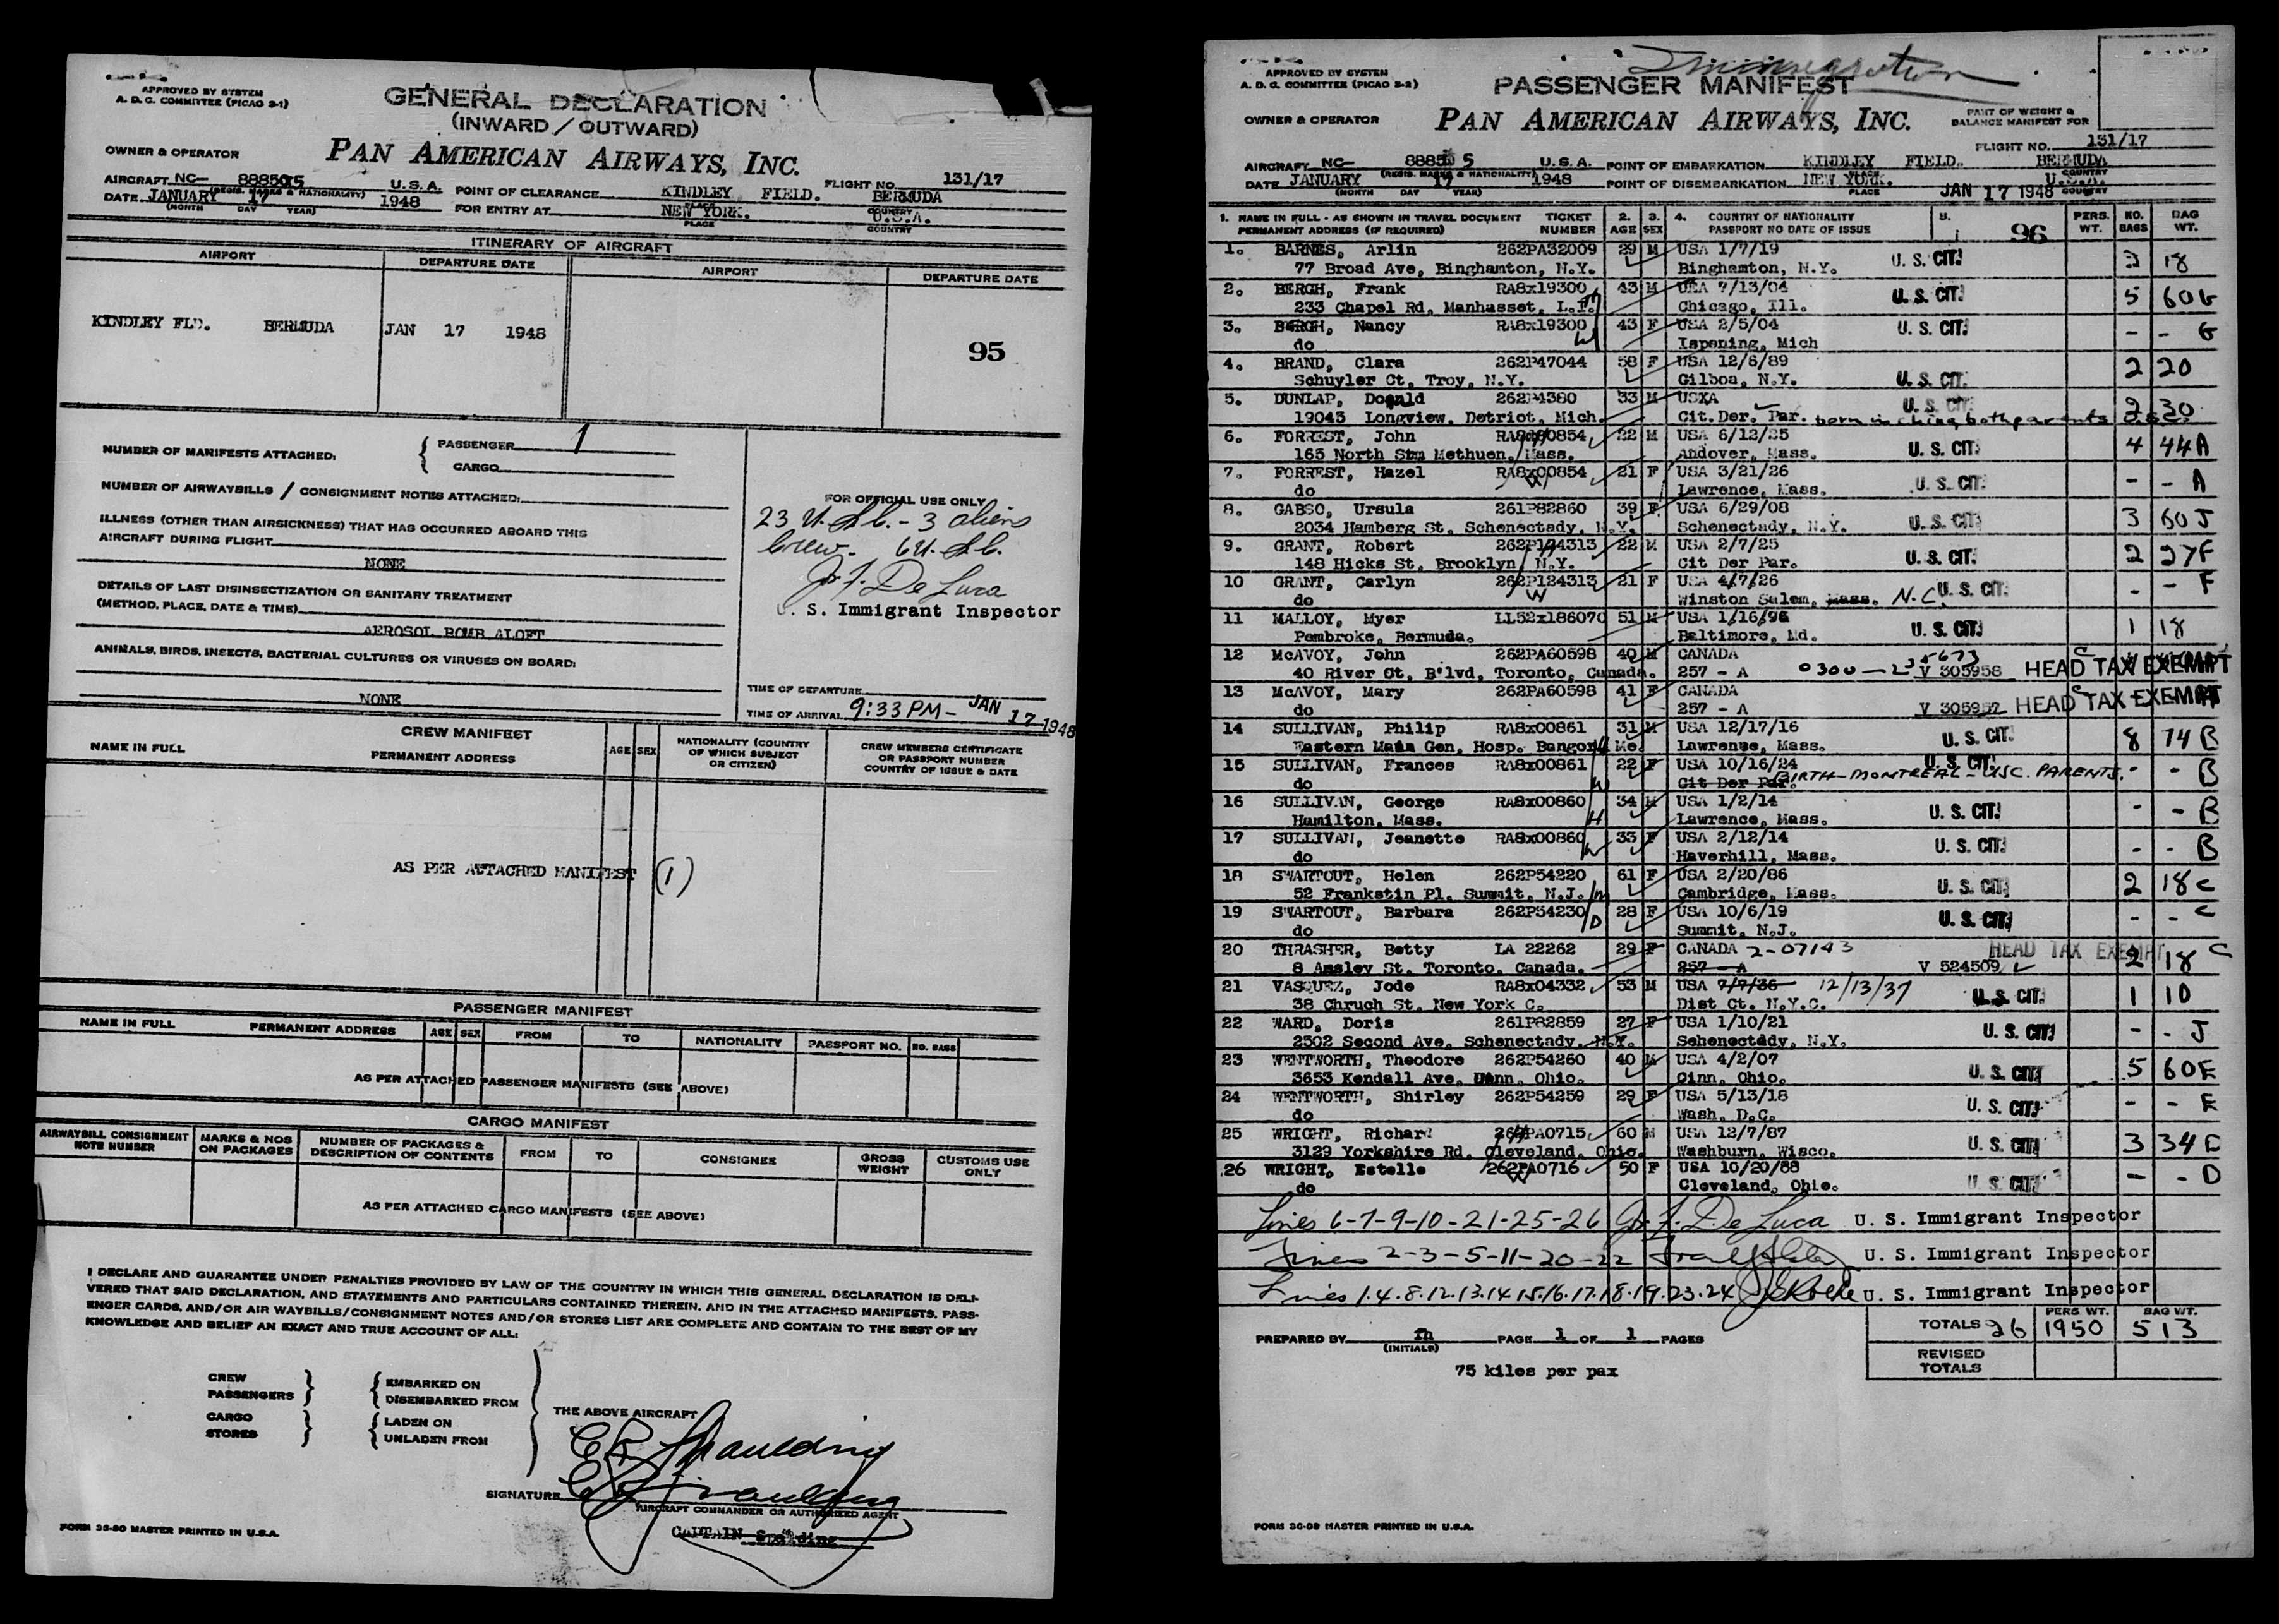 APPROVED BY SYSTEM
A. D. C. COMMITTEE (PICAO S-1)
GENERAL DECLARATION
(INWARD / OUTWARD)
OWNER & OPERATOR
PAN AMERICAN AIRWAYS, INC.
AIRCRAFT NC- U.S.A. POINT OF CLEARANCE KINDLEY FIELD. BERMUDA FLIGHT NO. 131/17
(REGIS. MARKS & NATIONALITY) PLACE COUNTRY
DATE JANUARY 17 1948 FOR ENTRY AT NEW YORK. U.S.A.
(MONTH DAY YEAR) PLACE COUNTRY
ITINERARY OF AIRCRAFT
AIRPORT DEPARTURE DATE AIRPORT DEPARTURE DATE
KINDLEY FLD. BERMUDA JAN 17 1948
95
NUMBER OF MANIFESTS ATTACHED: PASSENGER 1
CARGO
NUMBER OF AIRWAYBILLS / CONSIGNMENT NOTES ATTACHED:
ILLNESS (OTHER THAN AIRSICKNESS) THAT HAS OCCURRED ABOARD THIS
AIRCRAFT DURING FLIGHT
NONE
DETAILS OF LAST DISINSECTIZATION OR SANITARY TREATMENT
(METHOD, PLACE, DATE & TIME)
AEROSOL BOMB ALOFT
ANIMALS, BIRDS, INSECTS, BACTERIAL CULTURES OR VIRUSES ON BOARD:
NONE
FOR OFFICIAL USE ONLY
23 U.S.C. - 3 aliens
Crew - 6 U.S.C.
J. F. De Luca
U. S. Immigrant Inspector
TIME OF DEPARTURE
TIME OF ARRIVAL 9:33 PM - JAN 17 1948
CREW MANIFEST
NAME IN FULL PERMANENT ADDRESS AGE SEX NATIONALITY (COUNTRY OF WHICH SUBJECT OR CITIZEN) CREW MEMBERS CERTIFICATE OR PASSPORT NUMBER COUNTRY OF ISSUE & DATE
AS PER ATTACHED MANIFEST (1)
PASSENGER MANIFEST
NAME IN FULL PERMANENT ADDRESS AGE SEX FROM TO NATIONALITY PASSPORT NO. NO. BAGS
AS PER ATTACHED PASSENGER MANIFESTS (SEE ABOVE)
CARGO MANIFEST
AIRWAYBILL CONSIGNMENT NOTE NUMBER MARKS & NOS ON PACKAGES NUMBER OF PACKAGES & DESCRIPTION OF CONTENTS FROM TO CONSIGNEE GROSS WEIGHT CUSTOMS USE ONLY
AS PER ATTACHED CARGO MANIFESTS (SEE ABOVE)
I DECLARE AND GUARANTEE UNDER PENALTIES PROVIDED BY LAW OF THE COUNTRY IN WHICH THIS GENERAL DECLARATION IS DELI-
VERED THAT SAID DECLARATION, AND STATEMENTS AND PARTICULARS CONTAINED THEREIN, AND IN THE ATTACHED MANIFESTS, PASS-
ENGER CARDS, AND/OR AIR WAYBILLS/CONSIGNMENT NOTES AND/OR STORES LIST ARE COMPLETE AND CONTAIN TO THE BEST OF MY
KNOWLEDGE AND BELIEF AN EXACT AND TRUE ACCOUNT OF ALL:
CREW EMBARKED ON
PASSENGERS DISEMBARKED FROM
CARGO LADEN ON
STORES UNLADEN FROM
THE ABOVE AIRCRAFT
SIGNATURE
AIRCRAFT COMMANDER OR AUTHORIZED AGENT
CAPTAIN
FORM 36-80 MASTER PRINTED IN U.S.A.
Immigration
APPROVED BY SYSTEM
A. D. C. COMMITTEE (PICAO S-2)
PASSENGER MANIFEST
OWNER & OPERATOR
PAN AMERICAN AIRWAYS, INC.
PART OF WEIGHT &
BALANCE MANIFEST FOR
FLIGHT NO. 131/17
AIRCRAFT NC- U.S.A. POINT OF EMBARKATION KINDLEY FIELD. BERMUDA
(REGIS. MARKS & NATIONALITY) PLACE COUNTRY
DATE JANUARY 17 1948 POINT OF DISEMBARKATION NEW YORK. U.S.A.
(MONTH DAY YEAR) PLACE JAN 17 1948 COUNTRY
1. NAME IN FULL - AS SHOWN IN TRAVEL DOCUMENT TICKET 2. 3. 4. COUNTRY OF NATIONALITY 5. PERS. NO. BAG
PERMANENT ADDRESS (IF REQUIRED) NUMBER AGE SEX PASSPORT NO DATE OF ISSUE 96 WT. BAGS WT.
1. BARNES, Arlin 262PA32009 29 M USA 1/7/19 U. S. CIT. 18
77 Broad Ave, Binghamton, N.Y. Binghamton, N.Y.
2. BERGH, Frank RA8x19300 43 M USA 7/13/04 U. S. CIT. 5 60 G
233 Chapel Rd, Manhasset, L.I. Chicago, Ill.
3. BERGH, Nancy RA8x19300 W 43 F USA 2/5/04 U. S. CIT. - - G
do Ispening, Mich
4. BRAND, Clara 262P47044 58 F USA 12/6/89 U. S. CIT. 2 20
Schuyler Ct, Troy, N.Y. Gilboa, N.Y.
5. DUNLAP, Donald 262P4380 33 M USXA U. S. CIT. 2 30
19043 Longview, Detriot, Mich. Cit. Der. Par. born in china, both parents U.S.C.
6. FORREST, John 22 M USA 6/12/25 U. S. CIT. 4 44 A
165 North Methuen, Mass. Andover, Mass.
7. FORREST, Hazel RA8x00854 W 21 F USA 3/21/26 U. S. CIT. - - A
do Lawrence, Mass.
8. GABSO, Ursula 261P82860 39 F USA 6/29/08 U. S. CIT. 3 60 J
2034 Hamberg St, Schenectady, N.Y. Schenectady, N.Y.
9. GRANT, Robert 262P124313 H 22 M USA 2/7/25 U. S. CIT. 2 27 F
148 Hicks St, Brooklyn, N.Y. Cit Der Par.
10 GRANT, Carlyn 262P124313 W 21 F USA 4/7/26 U. S. CIT. - - F
do Winston Salem, Mass. N.C.
11 MALLOY, Myer LL52x186070 51 M USA 1/16/96 U. S. CIT. 1 18
Pembroke, Bermuda. Baltimore, Md.
12 McAVOY, John 262PA60598 40 M CANADA
40 River St, B'lvd, Toronto, Canada. 257 - A V 305958 HEAD TAX EXEMPT
13 McAVOY, Mary 262PA60598 41 F CANADA
do 257 - A V 305957 HEAD TAX EXEMPT
14 SULLIVAN, Philip RA8x00861 31 M USA 12/17/16 U. S. CIT. 8 74 B
Eastern Main Gen, Hosp. Bangor, Me. Lawrence, Mass.
15 SULLIVAN, Frances RA8x00861 W 22 F USA 10/16/24 U. S. CIT. - - B
do Cit Der Par. BIRTH - MONTREAL - USC. PARENTS.
16 SULLIVAN, George RA8x00860 H 34 M USA 1/2/14 U. S. CIT. - - B
Hamilton, Mass. Lawrence, Mass.
17 SULLIVAN, Jeanette RA8x00860 W 33 F USA 2/12/14 U. S. CIT. - - B
do Haverhill, Mass.
18 SWARTOUT, Helen 262P54220 M 61 F USA 2/20/86 U. S. CIT. 2 18 C
52 Frankstin Pl. Summit, N.J. Cambridge, Mass.
19 SWARTOUT, Barbara 262P54230 D 28 F USA 10/6/19 U. S. CIT. - - C
do Summit, N.J.
20 THRASHER, Betty LA 22262 29 F CANADA 2-07143 HEAD TAX EXEMPT 2 18 C
8 Ansley St, Toronto, Canada. 257 - A V 524509
21 VASQUEZ, Jode RA8x04332 53 M USA 7/7/36 12/13/37 U. S. CIT. 1 10
38 Chruch St. New York C. Dist Ct. N.Y.C.
22 WARD, Doris 261P82859 27 F USA 1/10/21 U. S. CIT. - - J
2502 Second Ave, Schenectady, N.Y. Schenectady, N.Y.
23 WENTWORTH, Theodore 262P54260 40 M USA 4/2/07 U. S. CIT. 5 60 E
3653 Kendall Ave, Ohio. Cinn, Ohio.
24 WENTWORTH, Shirley 262P54259 29 F USA 5/13/18 U. S. CIT. - - E
do Wash, D.C.
25 WRIGHT, Richard 60 M USA 12/7/87 U. S. CIT. 3 34 D
3129 Yorkshire Rd, Cleveland, Ohio. Washburn, Wisco.
26 WRIGHT, Estelle 262PA0716 W 50 F USA 10/20/88 U. S. CIT. - - D
do Cleveland, Ohio.
Lines 6-7-9-10-21-25-26 J. F. De Luca U. S. Immigrant Inspector
Lines 2-3-5-11-20-22 U. S. Immigrant Inspector
Lines 1.4.8.12.13.14.15.16.17.18.19.23.24 U. S. Immigrant Inspector
PERS. WT. BAG WT.
TOTALS 26 1950 513
PREPARED BY PAGE 1 OF 1 PAGES
(INITIALS)
REVISED
TOTALS
75 kilos per pax
FORM 36-89 MASTER PRINTED IN U.S.A.